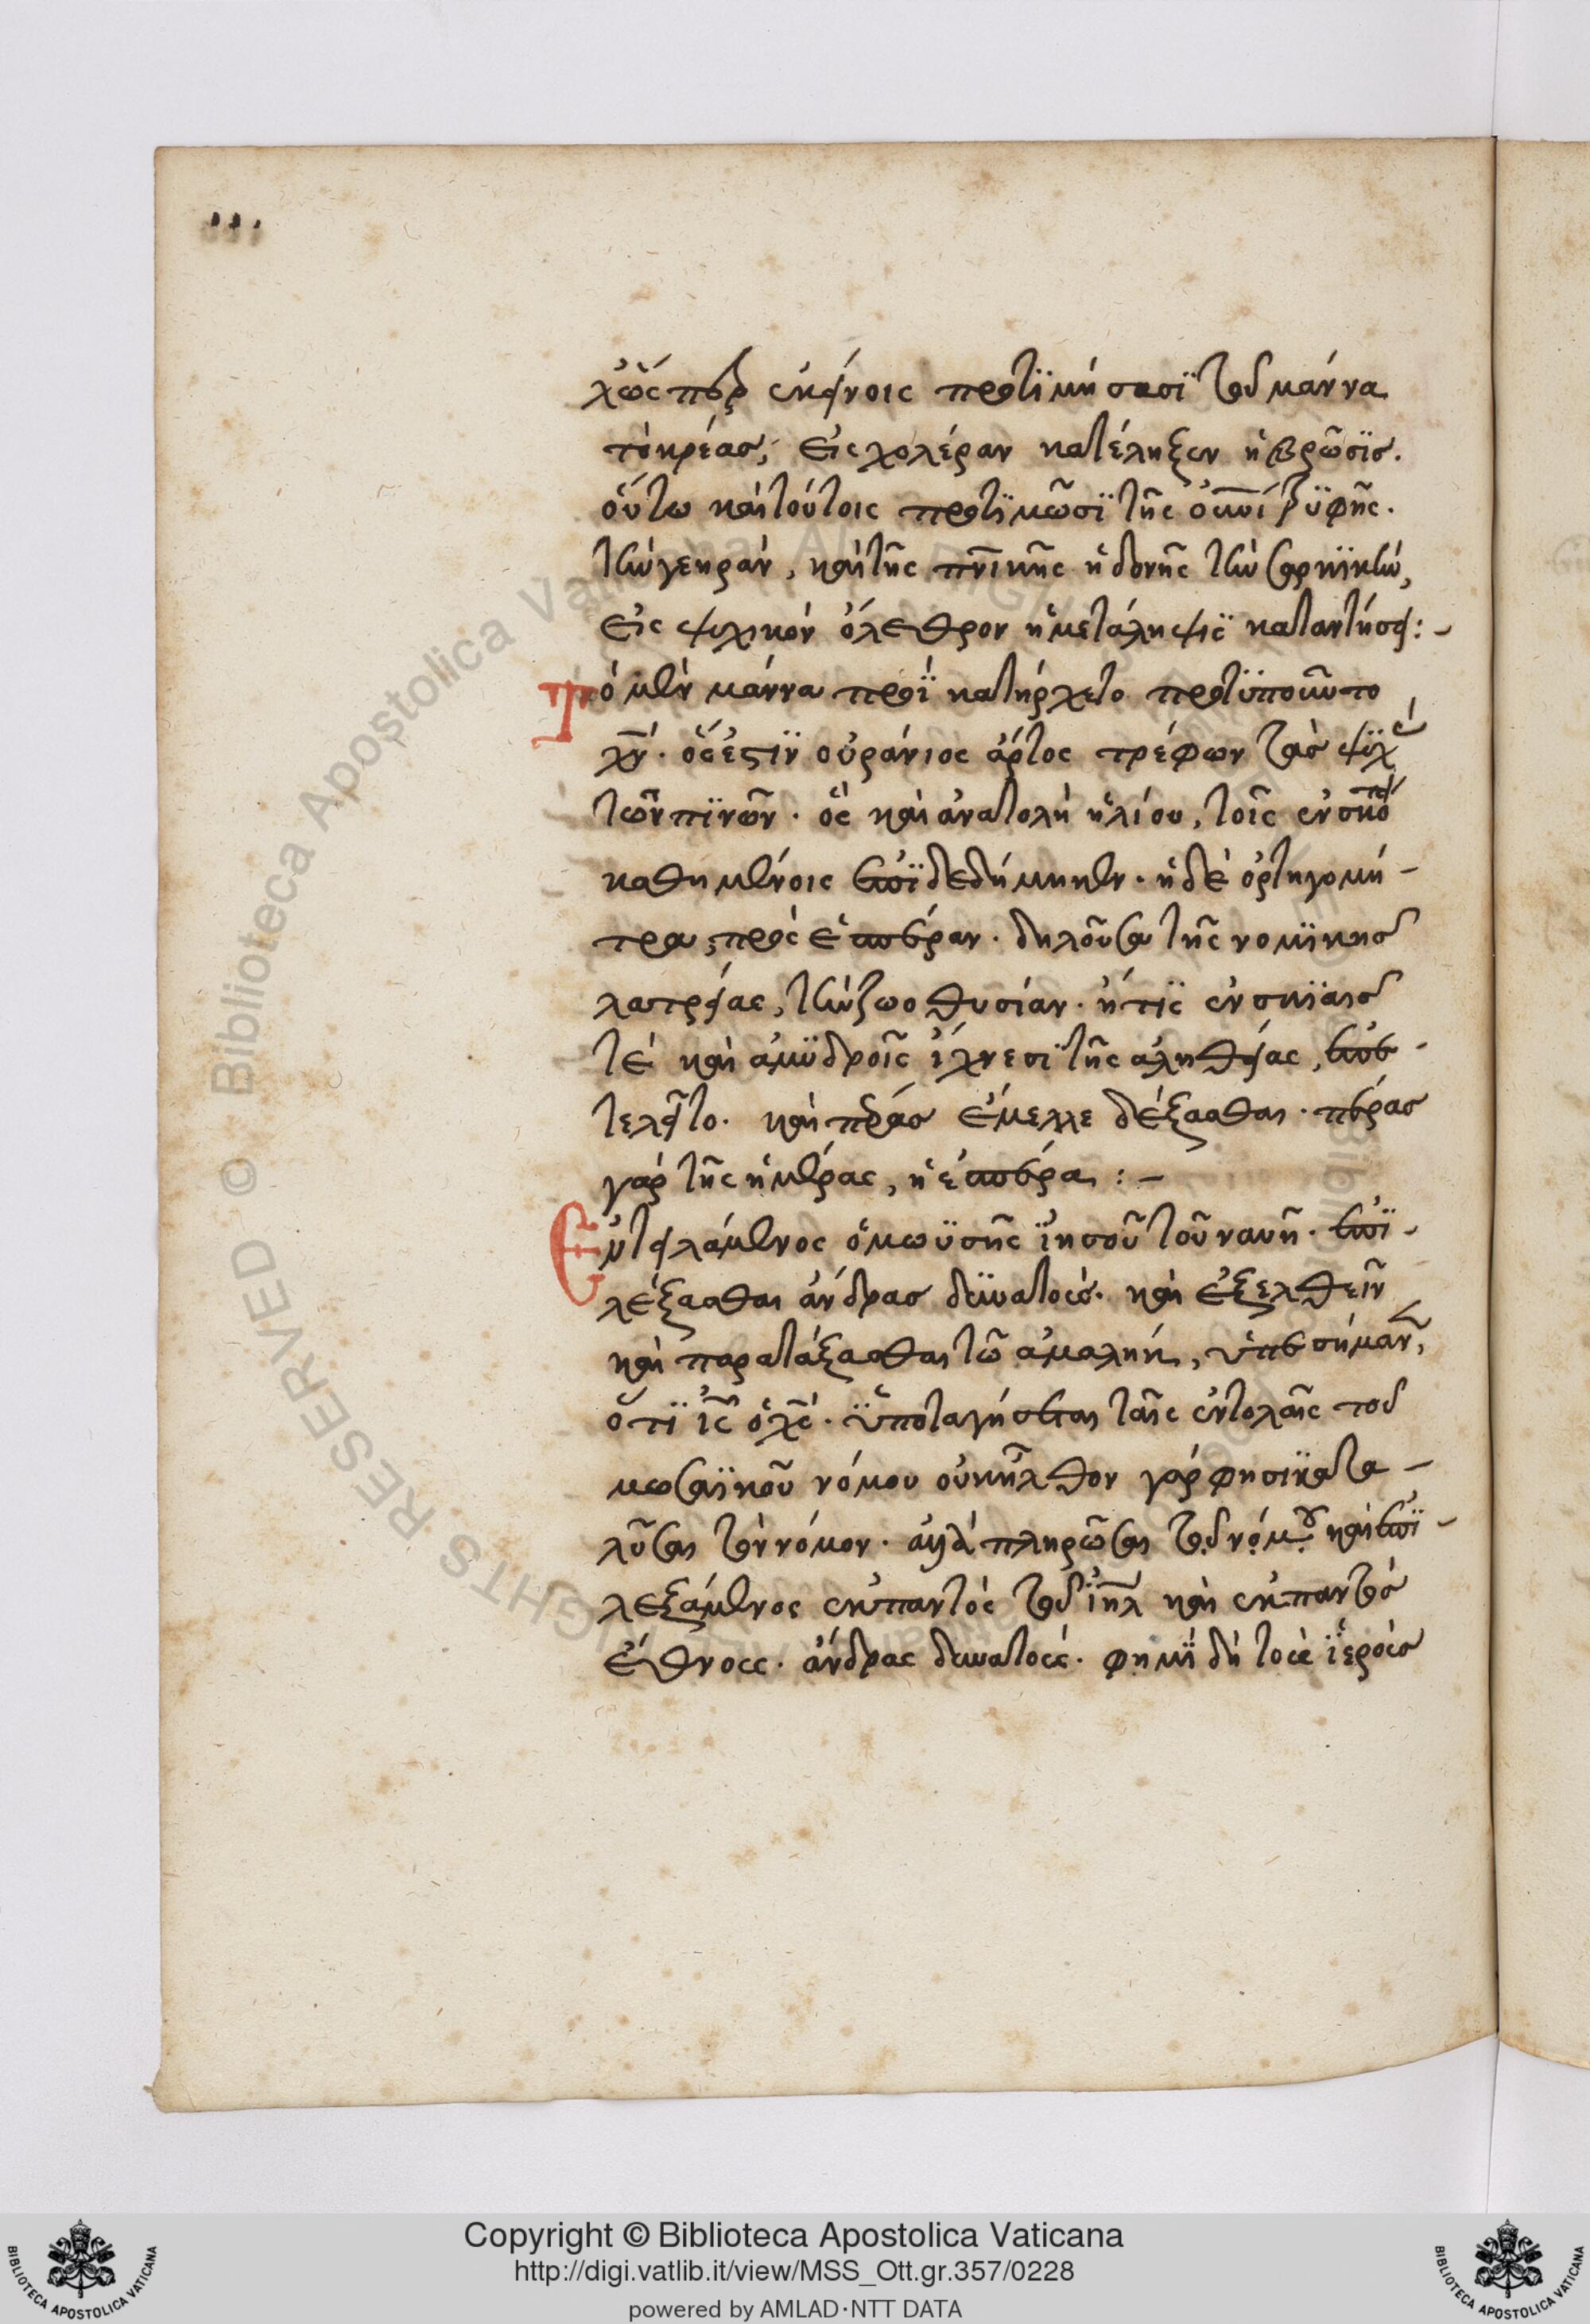 χῶς ὥσπερ ἐκείνοις προτϊμήσασϊ τοῦ μάννα
τὸ κρέας, εἰς χολέραν κατέληξεν ἡ βρῶσϊς.
οὕτω καὶ τούτοις προτϊμῶσϊ τῆς
τὴν γεηράν, καὶ τῆς πν̅ικῆς ἡδονῆς τὴν σαρκϊκὴν,
εἰς ψυχικὸν ὄλεθρον ἡ μετάληψϊς καταντήσει:-
Τὸ μὲν μάννα πρωῒ κατήρχετο προτϋποῦν το
χν̅. ὅς ἐστϊν οὐράνιος ἄρτος τρέφων τὰς ψϋχὰς
τῶν πϊστῶν. ὃς καὶ ἀνατολὴ ἡλίου, τοῖς ἐν σκότει
καθημένοις ἐπϊδεδήμηκεν. ἡ δὲ ὀρτηγομή-
τρα, πρὸς ἑσπέραν. δηλοῦσα τῆς νομϊκῆς
λατρείας, τὴν ζωοθυσίαν. ἥτϊς ἐν σκϊαῖς
τὲ καὶ ἀμϋδροῖς ἴχνεσϊ τῆς ἀληθείας, ἐπε-
τελεῖτο. καὶ πέρας ἔμελλε δέξασθαι. πέρας
γὰρ τῆς ἡμέρας, ἡ ἑσπέρα:-
Ἐντειλάμενος ὁ μωϋσῆς ἰησοῦ τοῦ ναυῆ. ἐπϊ-
λέξασθαι ἄνδρας δϋνατοὺς. καὶ ἐξελθεῖν
καὶ παρατάξασθαι τῶ ἀμαλὴκ, ὑπεσήμαν,
ὅτϊ ις̅ ὁ χς̅. ὑποταγήσεται ταῖς ἐντολαῖς τοῦ
μωσαϊκοῦ νόμου οὐκ ἦλθον γάρ φησϊ κατα-
λῦσαι τὸν νόμον. ἀλλὰ πληρῶσαι τοῦ νόμου καὶ ἐπϊ-
λεξάμενος ἐκ παντὸς τοῦ ιηλ̅ καὶ ἐκ παντὸς
ἔθνους. ἄνδρας δυνατούς. φημϊ δὴ τοὺς ἱεροὺς
Copyright © Biblioteca Apostolica Vaticana
http://digi.vatlib.it/view/MSS_Ott.gr.357/0228
powered by AMLAD·NTT DATA